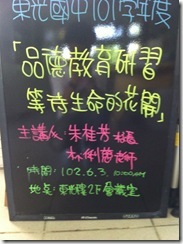 東光國中101學年度
「品德教育研習
等待生命的花開」
主講人:朱桂芳
林俐茵老師
時間:102.6.3.
地點:東光樓2F會議室